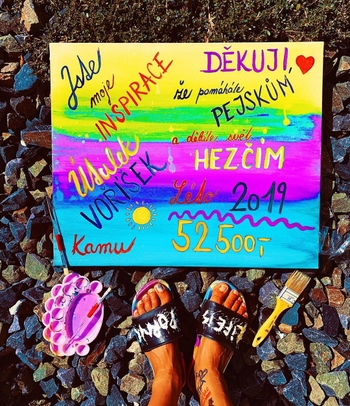 Jste
moje
INSPIRACE
DĚKUJI,
že pomáháte
PEJSKŮM
a děláte svět
HEZČÍM
Útulek
VOŘÍŠEK
Léto 2019
Kamu
52500,-